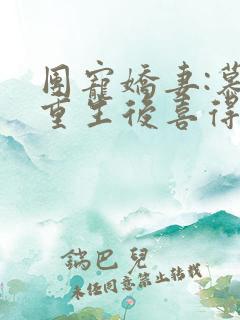 團寵嬌妻:慕
重生後喜得
鍋巴兒
未經同意禁止轉載